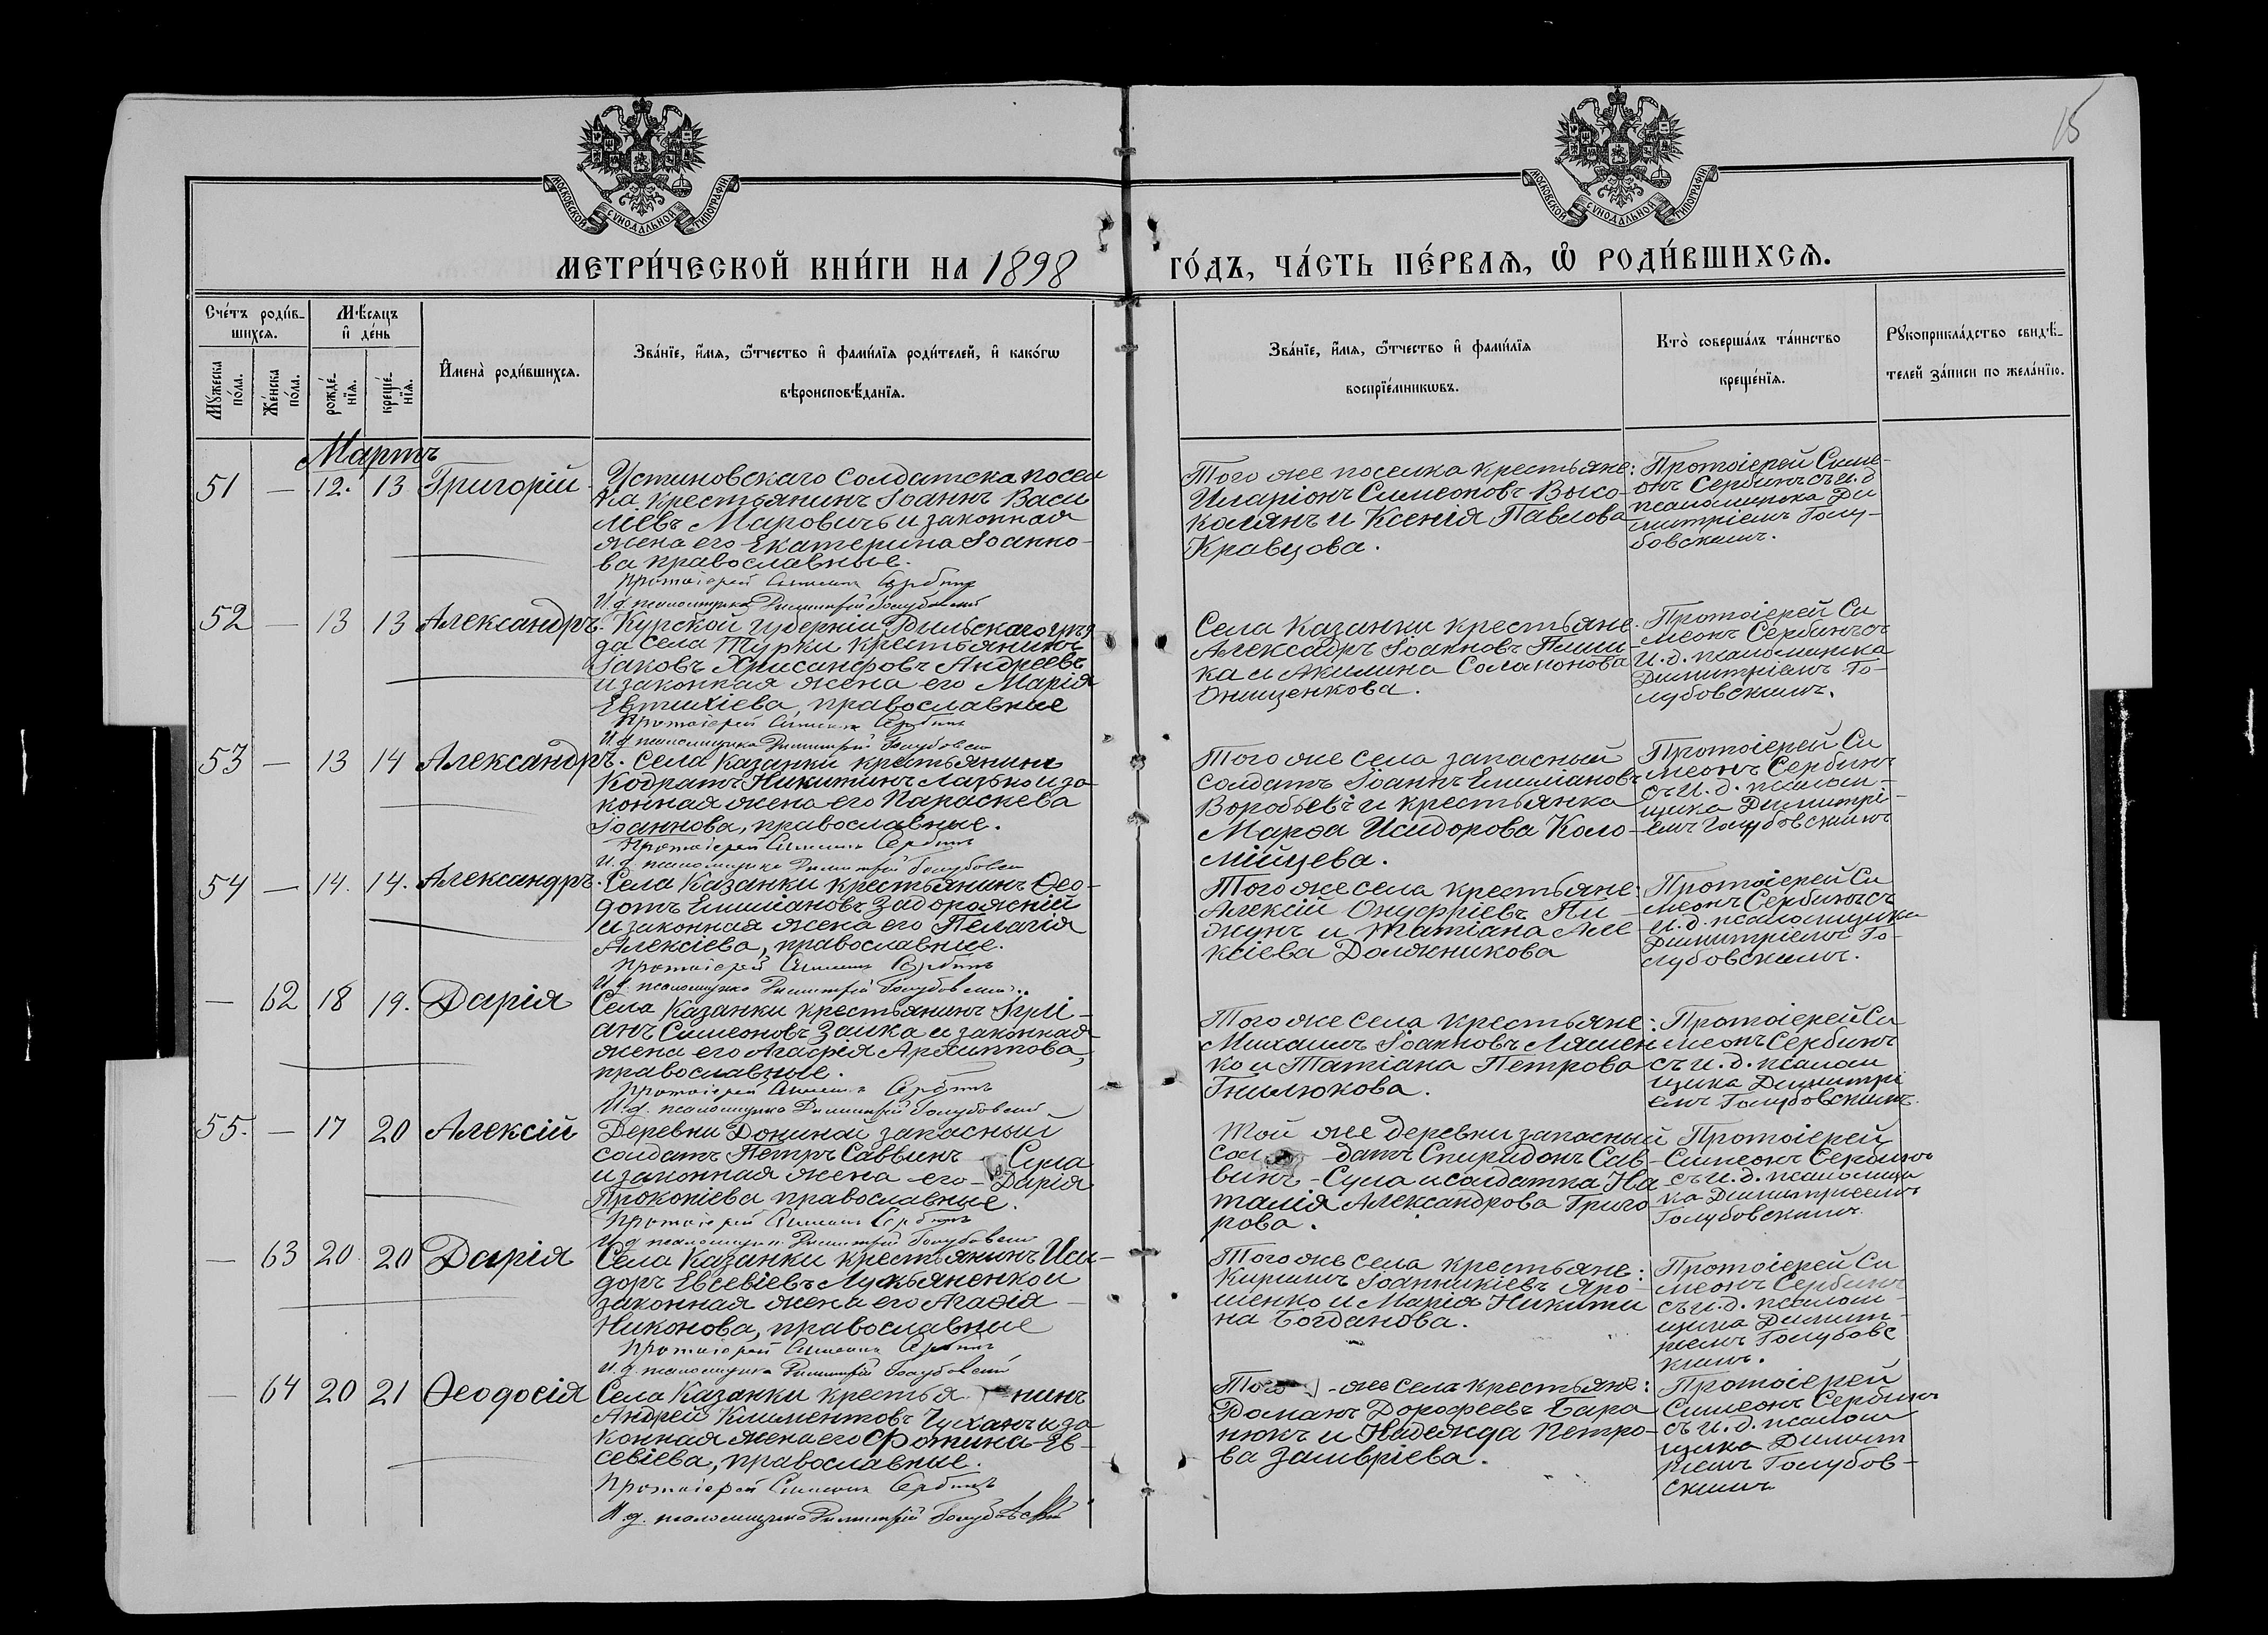 15
МОСКОВСКОЙ СѴНОДАЛЬНОЙ ТИПОГРАФІИ
МОСКОВСКОЙ СѴНОДАЛЬНОЙ ТИПОГРАФІИ
МЕТРИ́ЧЕСКОЙ КНИ́ГИ НА 1898 ГО́ДЪ, ЧА́СТЬ ПЕ́РВАѦ, Ѽ РОДИ́ВШИХСѦ.
Сче́тъ роди́в-
шихсѧ.
Мѣ́сѧцъ
и҆ де́нь
Мꙋ́жеска
по́ла.
Же́нска
по́ла.
рожде́-
нїѧ.
креще́-
нїѧ.
И҆мена̀ роди́вшихсѧ.
Зва́нїе, и҆́мѧ, ѻ҆́тчество и҆ фами́лїѧ роди́телей, и҆ како́гѡ
вѣроисповѣ́данїѧ.
Зва́нїе, и҆́мѧ, ѻ҆́тчество и҆ фами́лїѧ
воспрїе́мникѡвъ.
Кто̀ соверша́лъ та́инство
креще́нїѧ.
Рꙋкоприкла́дство свидѣ́-
телей за́писи по жела́нїю.
Мартъ
51 — 12. 13 Григорій
Устиновскаго Солдатска посел
ка крестьянинъ Іоаннъ Васи
ліевъ Маровичъ и законная
жена его Екатерина Іоанно-
ва православные.
Протоіерей Симеонъ Сербинъ
И. д. псаломщика Димитрій Голубовскій
Того же поселка крестьяне:
Иларіонъ Симеоновъ Высо-
касянъ и Ксенія Павлова
Кравцова.
Протоіерей Симе-
онъ Сербинъ съ и. д
псаломщика Ди
митріемъ Голу-
бовскимъ.
52 — 13 13 Александръ.
Курской губерніи Рыльскаго уѣз
да села Турки крестьянинъ
Іаковъ Хрисанфовъ Андреевъ
и законная жена его Марія
Евтихіева, православные
Протоіерей Симеонъ Сербинъ
И. д. псаломщика Димитрій Голубовскій
Села Казанки крестьяне
Алексадръ Іоанновъ Плиш-
ка и Акилина Соламонова
Онищенкова.
Протоіерей Си
меонъ Сербинъ съ
и. д. псаломщика
Димитріемъ Го-
лубовскимъ.
53 — 13 14 Александръ.
Села Казанки крестьянинъ
Кодратъ Никитинъ Лазько и за
конная жена его Параскева
Іоаннова, православные.
Протоіерей Симеонъ Сербинъ
И. д. псаломщика Димитрій Голубовскій
Того же села запасный
солдатъ Іоаннъ Емиліановъ
Воробьевъ и крестьянка
Марѳа Исидорова Коло-
мійцева.
Протоіерей Си
меонъ Сербинъ
съ и. д. псалом-
щика Димитрі-
емъ Голубовскимъ
54 — 14. 14. Александръ.
Села Казанки крестьянинъ Ѳео-
дотъ Емиліановъ Задорожній
и законная жена его Пелагія
Алексіева, православные.
Протоіерей Симеонъ Сербинъ
И. д. псаломщика Димитрій Голубовскій
Того же села крестьяне:
Алексій Онуфріевъ Пи-
жунъ и Татіана Але-
ксіева Должникова
Протоіерей Си
меонъ Сербинъ съ
и. д. псаломщика
Димитріемъ Го-
лубовскимъ.
— 62 18 19. Дарія
Села Казанки крестьянинъ
анъ Симеоновъ Заика и законная
жена его Агафія Архиппова,
православные.
Протоіерей Симеонъ Сербинъ
И. д. псаломщика Димитрій Голубовскій
Того же села крестьяне:
Михаилъ Іоанновъ Ляшен
ко и Татіана Петрова
Гнилюкова.
Протоіерей Си
меонъ Сербинъ
съ и. д. псалом
щика Димитрі
емъ Голубовскимъ.
55. — 17 20 Алексій
Деревни Дониной запасный
солдатъ Петръ Саввинъ Сула
и законная жена его - Дарія
Прокопіева православные.
Протоіерей Симеонъ Сербинъ
И. д. псаломщика Димитрій Голубовскій
Той же деревни запасный
сол - датъ Спиридонъ Сав-
винъ - Сула и солдатка На
талія Александрова Григо
рова.
Протоіерей
Симеонъ Сербинъ
съ и. д. псаломщи
ка Димитріемъ
Голубовскимъ.
— 63 20 20 Дарія
Села Казанки крестьянинъ Иси-
доръ Евсевіевъ Лукьяненко и
законная жена его Агаѳія
Никонова, православные
Протоіерей Симеонъ Сербинъ
И. д. псаломщика Димитрій Голубовскій
Того же села крестьяне:
Кириллъ Іоанникіевъ Яро-
шенко и Марія Никити
на Богданова.
Протоіерей Си
меонъ Сербинъ
съ и. д. псалом-
щика Димит-
ріемъ Голубовс
кимъ.
— 64 20 21 Ѳеодосія
Села Казанки крестья - нинъ
Андрей Климентовъ Цуханъ и за
конная жена его Фотина Ев-
севіева, православные.
Протоіерей Симеонъ Сербинъ
И. д. псаломщика Димитрій Голубовскій
Того - же села крестьяне:
Романъ Дорофеевъ Бара
нюкъ и Надежда Петро-
ва Заивріева.
Протоіерей
Симеонъ Сербинъ
съ и. д. псалом
щика Димит
ріемъ Голубов-
скимъ